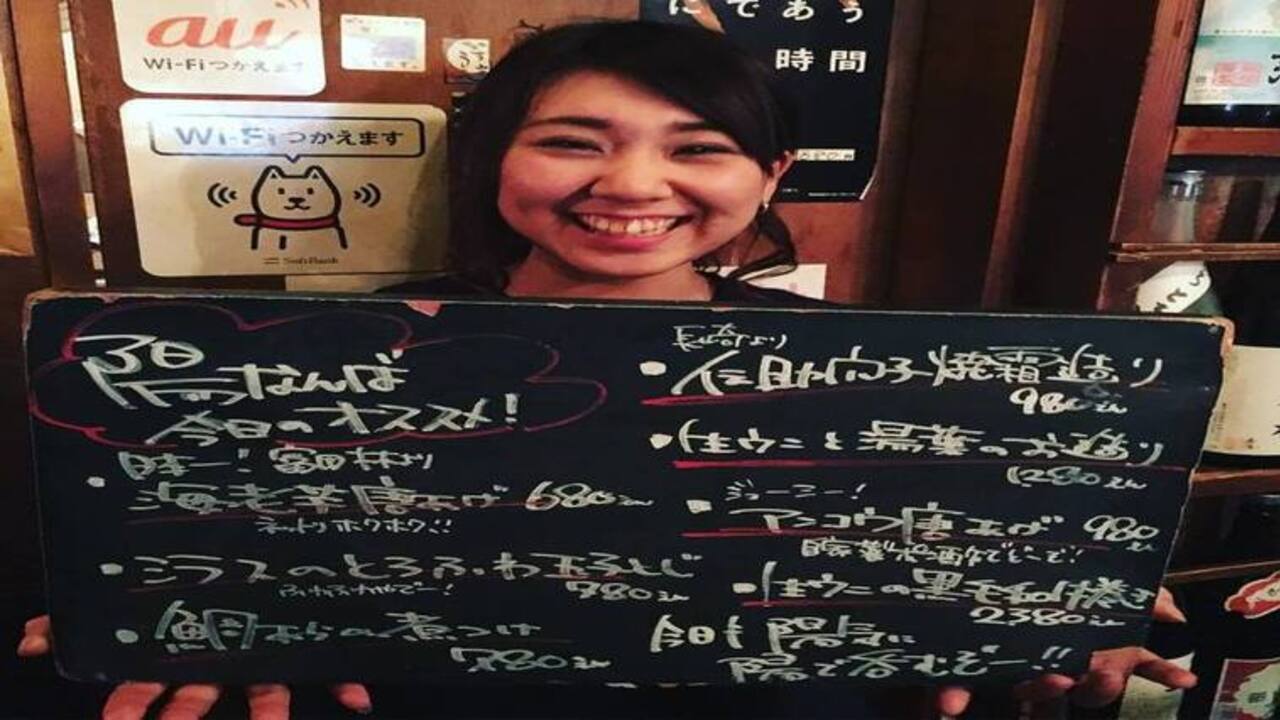 au
Wi-Fiつかえます
Wi-Fiつかえます
SoftBank
にであう
時間
陽なんば
今日のオススメ!
日本一!富田林より
・海老芋唐あげ 680えん
ネットリホクホク!!
・シラスのとろふわ玉子とじ
ふわふわやでー! 780えん
・鯛あらの煮つけ
780えん
長崎より
・伝助穴子焼霜造り
980えん
・生ウニと湯葉のお造り
1280えん
ジューシー!
・アンコウ唐上げ 980
えん
自家製ポン酢でどーぞ!
・生ウニの黒毛和牛巻き
2380えん
今日も陽気に
陽で呑むぞー!!